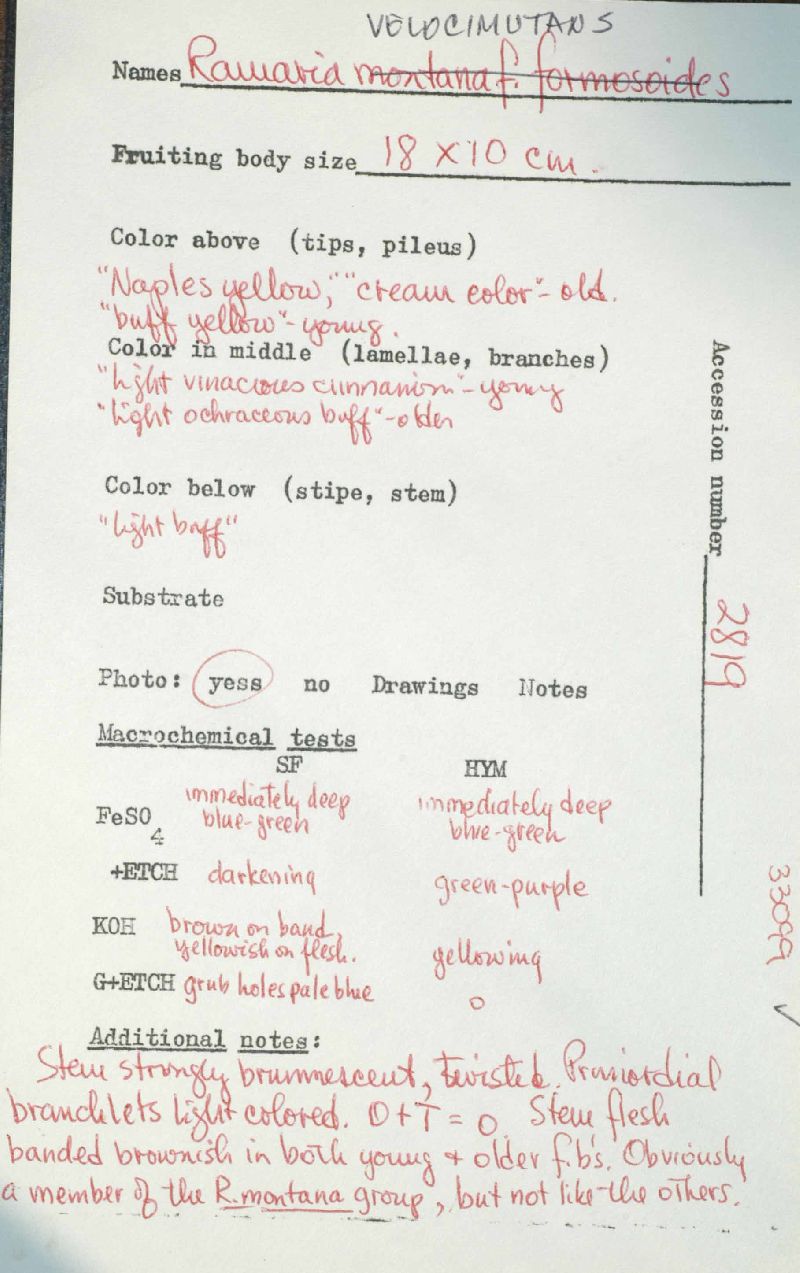 VELOCIMUTANS
Names Ramaria montana f. formosoides
Fruiting body size 18 x 10 cm.
Color above (tips, pileus)
"Naples yellow," "cream color"- old.
"buff yellow"-young.
Color in middle (lamellae, branches)
"light vinaceous cinnamon"-young
"light ochraceous buff"-older
Color below (stipe, stem)
"light buff"
Substrate
Photo: yess no Drawings Notes
Macrochemical tests
SF HYM
FeSO4 immediately deep blue-green immediately deep blue-green
+ETCH darkening green-purple
KOH brown on band, yellowish on flesh. yellowing
G+ETCH grub holes pale blue 0
Additional notes:
Stem strongly brunnescent, twisted. Primordial
branchlets light colored. O+T = 0 Stem flesh
banded brownish in both young + older f.b's. Obviously
a member of the R. montana group, but not like the others.
Accession number 2819
33099